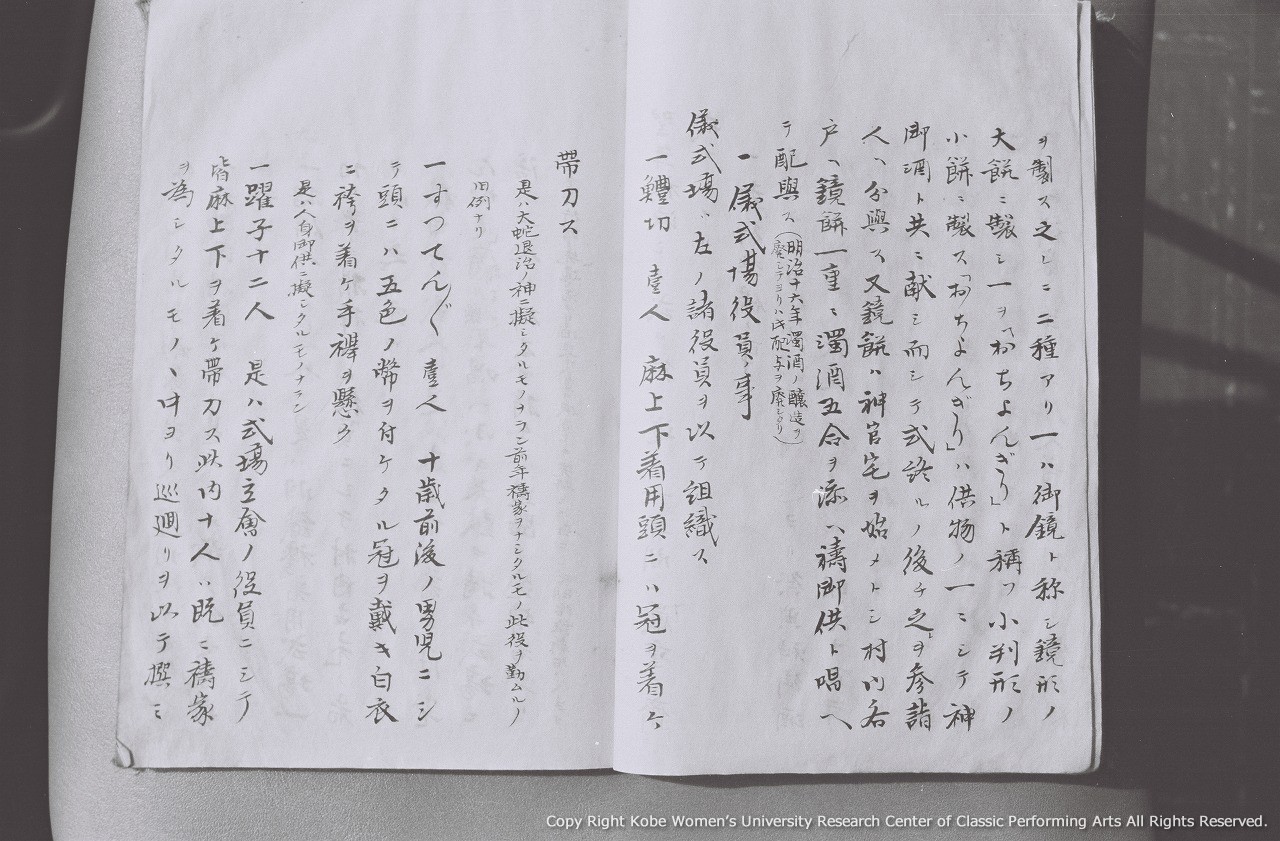 ヲ製ス之レニ二種アリ一ハ御鏡ト称シ鏡形ノ
大餅ニ製シ一ヲ「おちよんぎり」ト稱フ小判形ノ
小餅ニ製ス「おちよんぎり」ハ供物ノ一ニシテ神
御酒ト共ニ献シ而シテ式終ルノ後チ之ヲ参詣
人ヘ分與ス又鏡餅ハ神官宅ヲ始メトシ村内各
戸ヘ鏡餅一重ニ濁酒五合ヲ添ヘ祷御供ト唱ヘ
テ配與ス(明治十六年濁酒ノ醸造ヲ
廃シテヨリハ此配与ヲ廃シタリ)
一儀式場役員ノ事
儀式場ハ左ノ諸役員ヲ以テ組織ス
一鱧切 壹人 麻上下着用頭ニハ冠ヲ着ケ
帶刀ス
是ハ大蛇退治ノ神ニ擬シタルモノナラン前年禱家ヲナシタルモノ此役ヲ勤ムルノ
旧例ナリ
一すつてん〱 壹人 十歳前後ノ男児ニシ
テ頭ニハ五色ノ幣ヲ付ケタル冠ヲ戴キ白衣
ニ袴ヲ着ケ手襷ヲ懸ク
是ハ人身御供ニ擬シタルモノナラン
一躍子十二人 是ハ式場立會ノ役員ニシテ
皆麻上下ヲ着ケ帶刀ス此内十人ハ既ニ禱家
ヲ為シタルモノヽ中ヨリ巡廻リヲ以テ撰ミ
Copy Right Kobe Women's University Research Center of Classic Performing Arts All Rights Reserved.